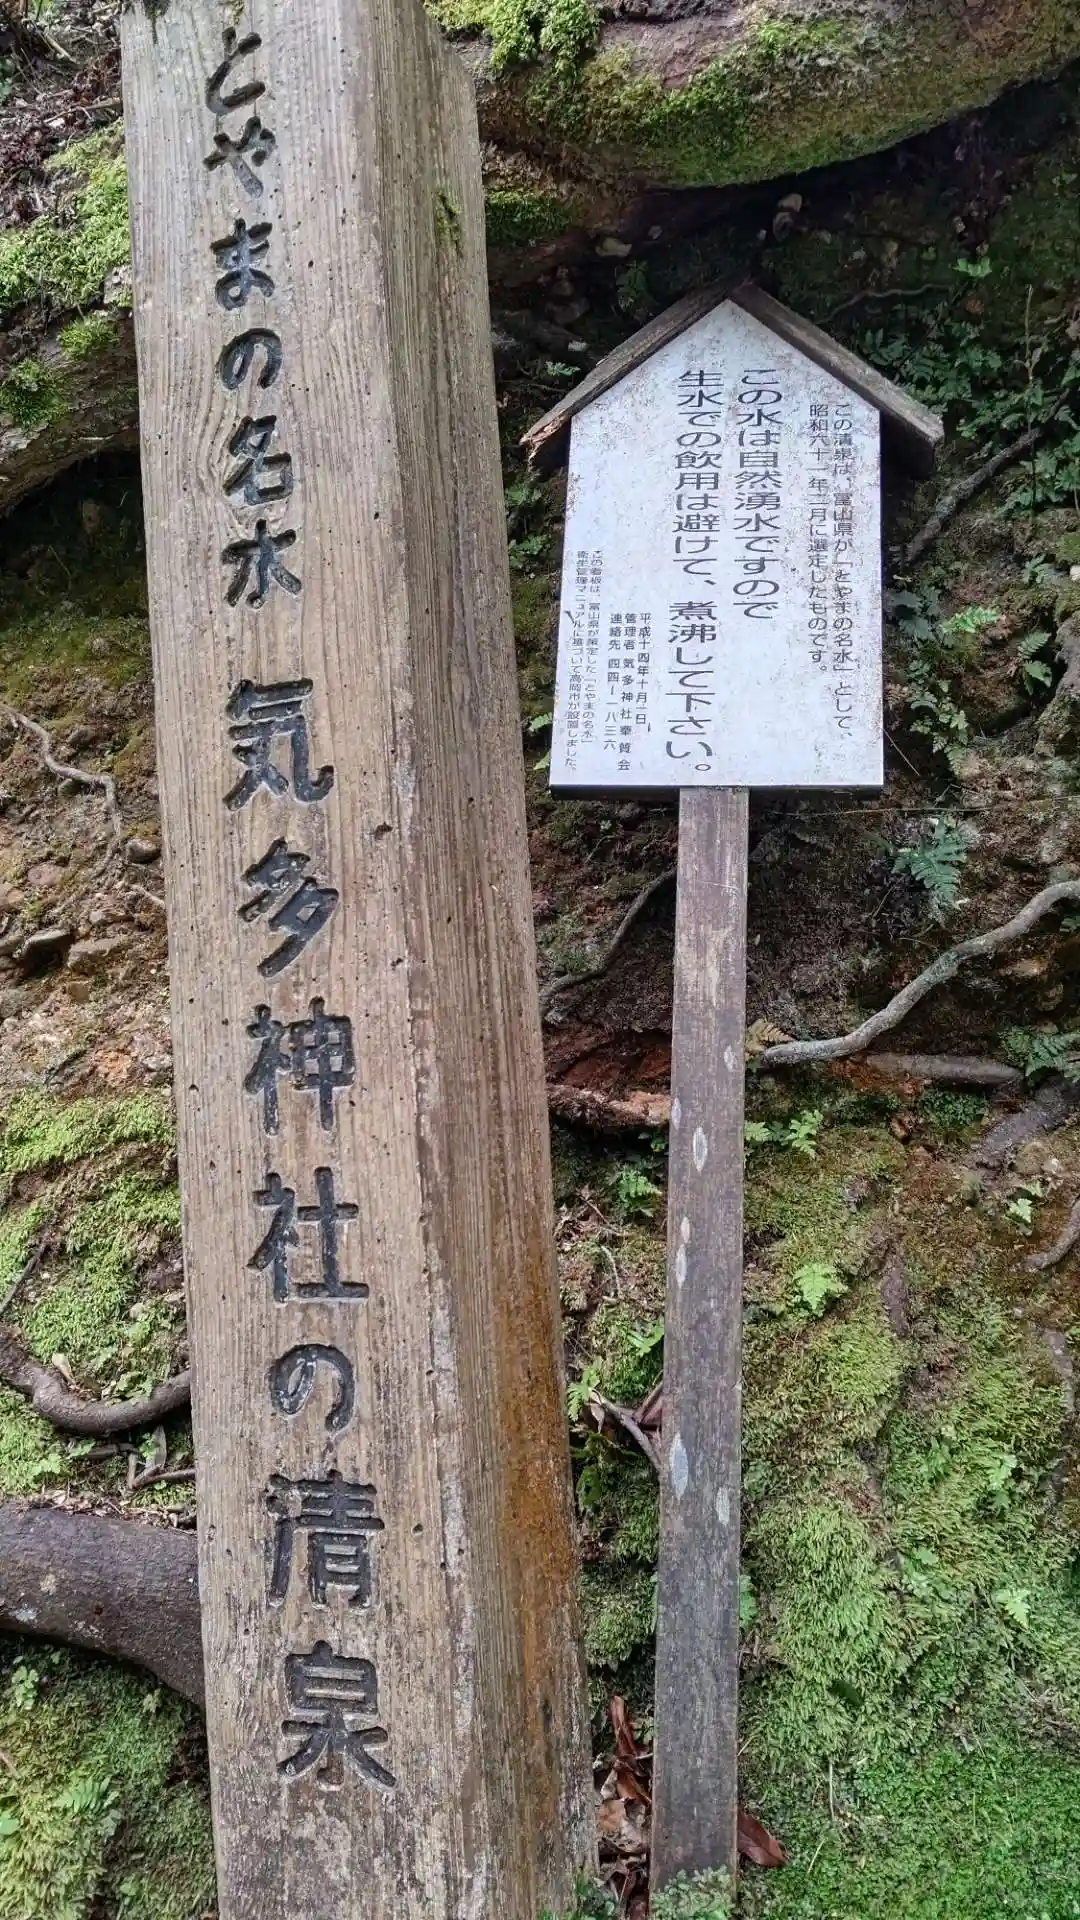 とやまの名水 気多神社の清泉
この清泉は、富山県が「とやまの名水」として、
昭和六十一年二月に選定したものです。
この水は自然湧水ですので
生水での飲用は避けて、煮沸して下さい。
平成十四年十月一日
管理者 気多神社奉賛会
連絡先 四四ー一八三六
この看板は、富山県が策定した「とやまの名水」
衛生管理マニュアルに基づいて高岡市が設置しました。